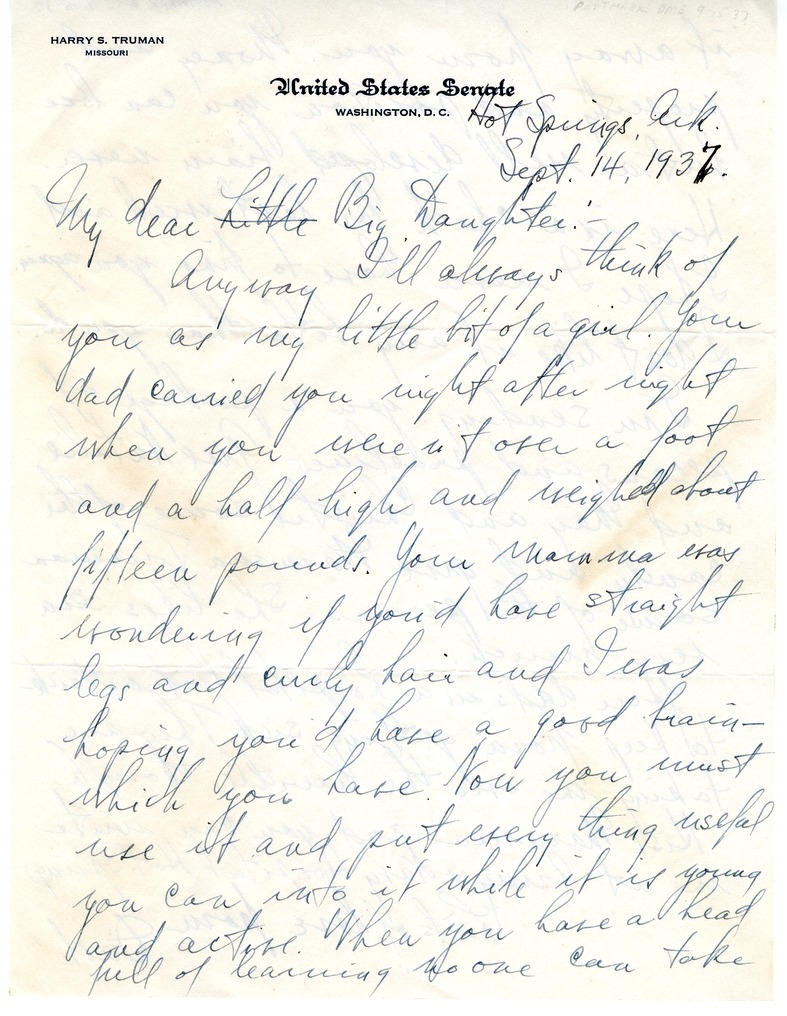 POSTMARK DATE 9-15-37
HARRY S. TRUMAN
MISSOURI
United States Senate
WASHINGTON, D. C.
Hot Springs, Ark.
Sept. 14, 1937.
My dear Little Big Daughter:-
Anyway I'll always think of
you as my little bit of a girl. Your
dad carried you night after night
when you weren't over a foot
and a half high and weighed about
fifteen pounds. Your mamma was
wondering if you'd have straight
legs and curly hair and I was
hoping you'd have a good brain—
which you have. Now you must
use it and put every thing useful
you can into it while it is young
and active. When you have a head
full of learning no one can take